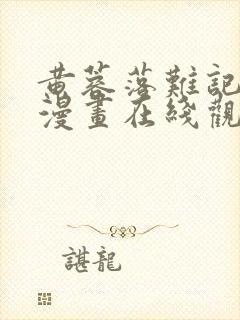 黃蓉落難記
漫畫在綫觀
諶龍